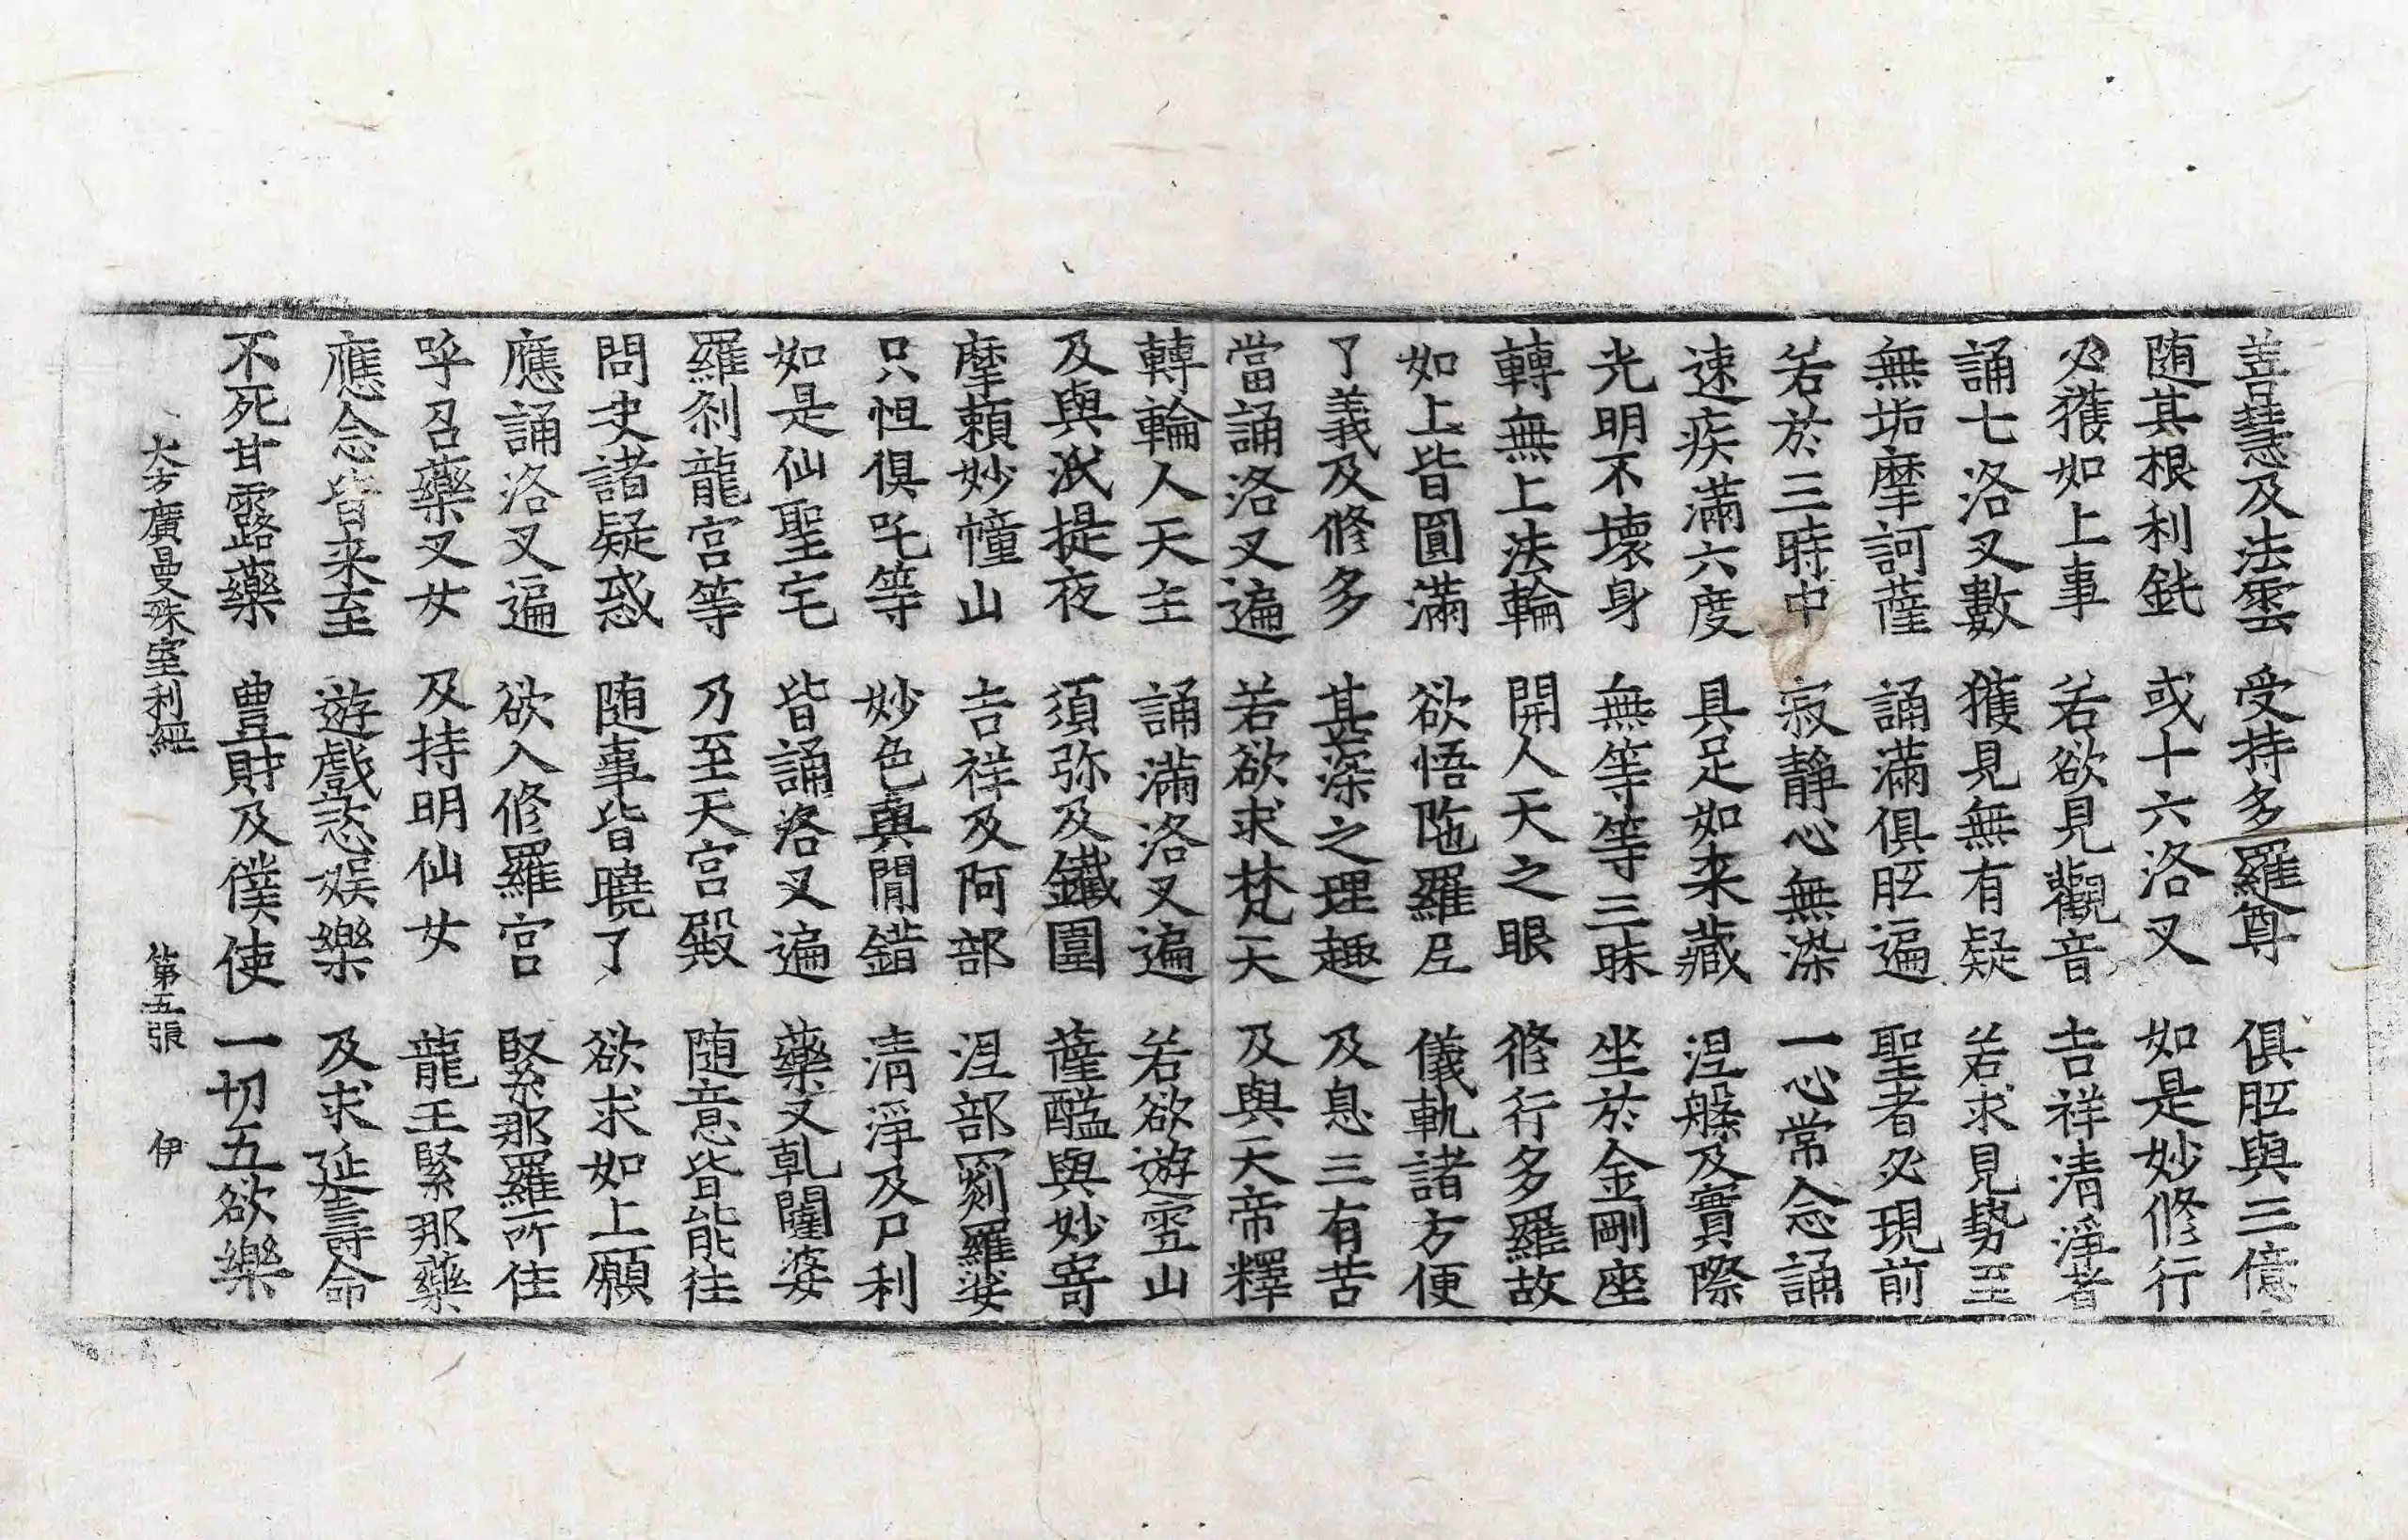 善慧及法雲 受持多羅尊 俱胝與三億
随其根利鈍 或十六洛叉 如是妙修行
必獲如上事 若欲見觀音 吉祥清淨者
誦七洛叉數 獲見無有疑 若求見勢至
無垢摩訶薩 誦滿俱胝遍 聖者必現前
若於三時中 寂靜心無染 一心常念誦
速疾滿六度 具足如来藏 涅槃及實際
光明不壞身 無等等三昧 坐於金剛座
轉無上法輪 開人天之眼 修行多羅故
如上皆圓滿 欲悟陁羅尼 儀軌諸方便
了義及修多 甚深之理趣 及息三有苦
當誦洛叉遍 若欲求梵天 及與天帝釋
轉輪人天主 誦滿洛叉遍 若欲遊雪山
及與泯提夜 須弥及鐵圍 薩醯與妙嵜
摩賴妙幢山 吉祥及阿部 涅部𦋺羅娑
只怛俱吒等 妙色與閒錯 清淨及尸利
如是仙聖宅 皆誦洛叉遍 藥叉乹闥婆
羅刹龍宫等 乃至天宫殿 随意皆能往
問史諸疑惑 随事皆曉了 欲求如上願
應誦洛叉遍 欲入修羅宫 緊那羅所住
呼召藥叉女 及持明仙女 龍王緊那藥
應念皆来至 遊戲恣娱樂 及求延壽命
不死甘露藥 豊財及僕使 一切五欲樂
大方廣曼殊室利經 第五張 伊